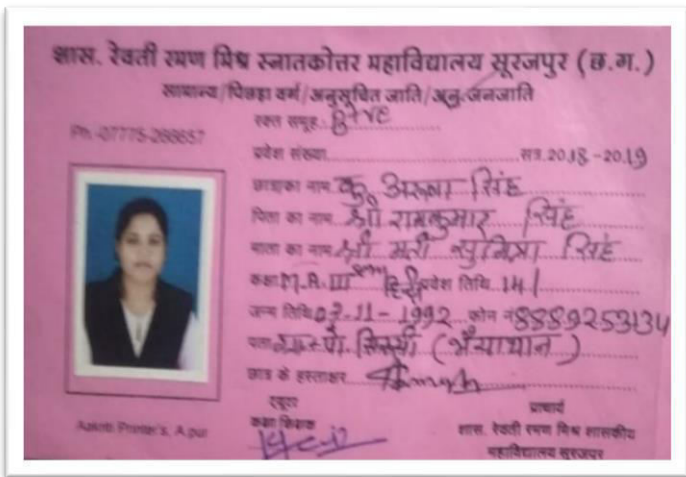 शास. रेवती रमण मिश्र स्नातकोत्तर महाविद्यालय सूरजपुर (छ.ग.)
सामान्य/पिछड़ा वर्ग/अनुसूचित जाति/अनु.जनजाति
Ph.-07775-266657
रक्त समूह. B+ve
प्रवेश संख्या. सत्र.2018-2019
छात्र/का नाम कु. अरूणा सिंह
पिता का नाम श्री रामकुमार सिंह
माता का नाम श्री मती सुमित्रा सिंह
कक्षा M.A. III sem हिन्दी प्रवेश तिथि. 14/
जन्म तिथि 07-11-1992 फोन नं 8889253134
पता ग्रा+पो. सिरसी (भैयाथान)
छात्र के हस्ताक्षर
ट्यूटर
कक्षा शिक्षक
प्राचार्य
शास. रेवती रमण मिश्र शासकीय
महाविद्यालय सूरजपुर
Aakriti Printer's, A.pur